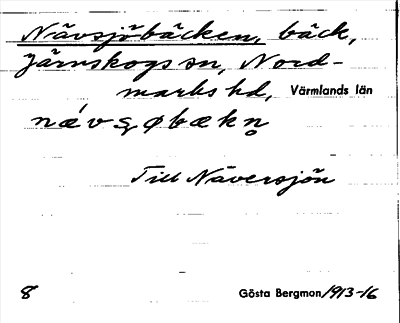 Nävsjöbäcken, bäck,
Järnskogs sn, Nord-
marks hd, Värmlands län
nǽvʂøbækn̥
Till Näversjön
8 Gösta Bergmon 1913-16